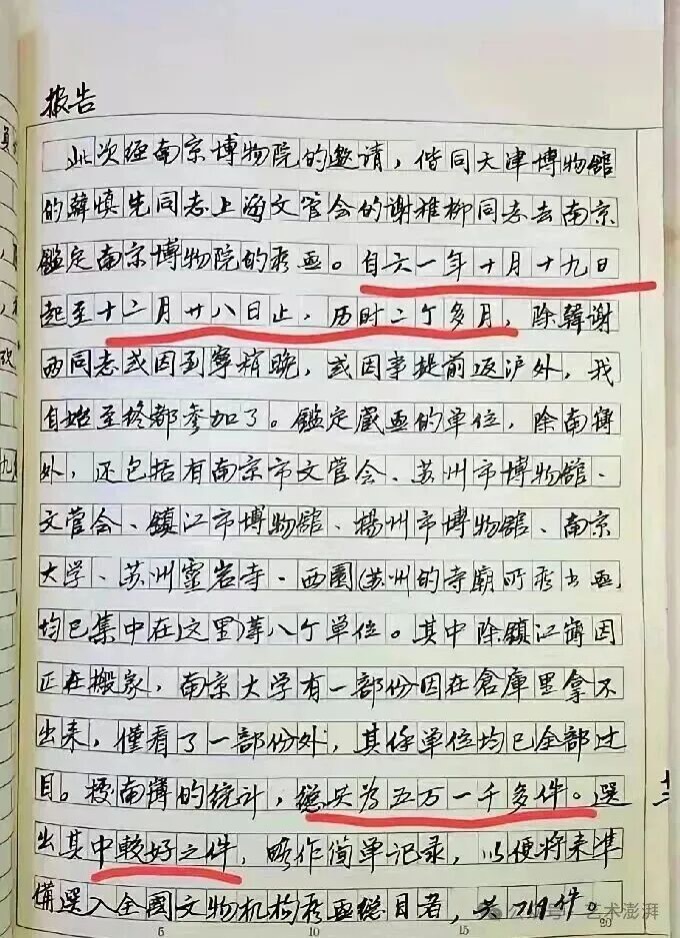 报告
此次经南京博物院的邀请，偕同天津博物館
的韓慎先同志上海文管会的谢稚柳同志去南京
鑑定南京博物院的藏画。自六一年十月十九日
起至十二月廿八日止，历时二个多月，除韓谢
两同志或因到寧稍晚，或因事提前返沪外，我
自始至终都参加了。鑑定藏画的单位，除南博
外，还包括有南京市文管会、苏州市博物館、
文管会、鎮江市博物館、楊州市博物館、南京
大学、苏州靈岩寺、西園(苏州的寺廟所藏书画，
均已集中在这里)等八个单位。其中除鎮江博因
正在搬家，南京大学有一部份因在倉庫里拿不
出来，僅看了一部份外，其余单位均已全部过
目。据南博的统计，總共为五万一千多件。選
出其中較好之件，略作简单记录，以便将来準
備選入全國文物机构藏画總目者，共719件。
十二
5 10 20
公众号 艺术澎湃